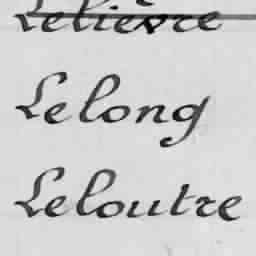 Lelièvre
Lelong
Leloutre